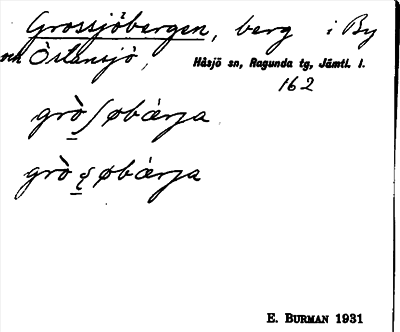 Grossjöbergen, berg i By
och Östansjö, Håsjö sn, Ragunda tg, Jämtl. l.
162
grò̱ʃøbærja
grò̱ʂøbærja
E. BURMAN 1931